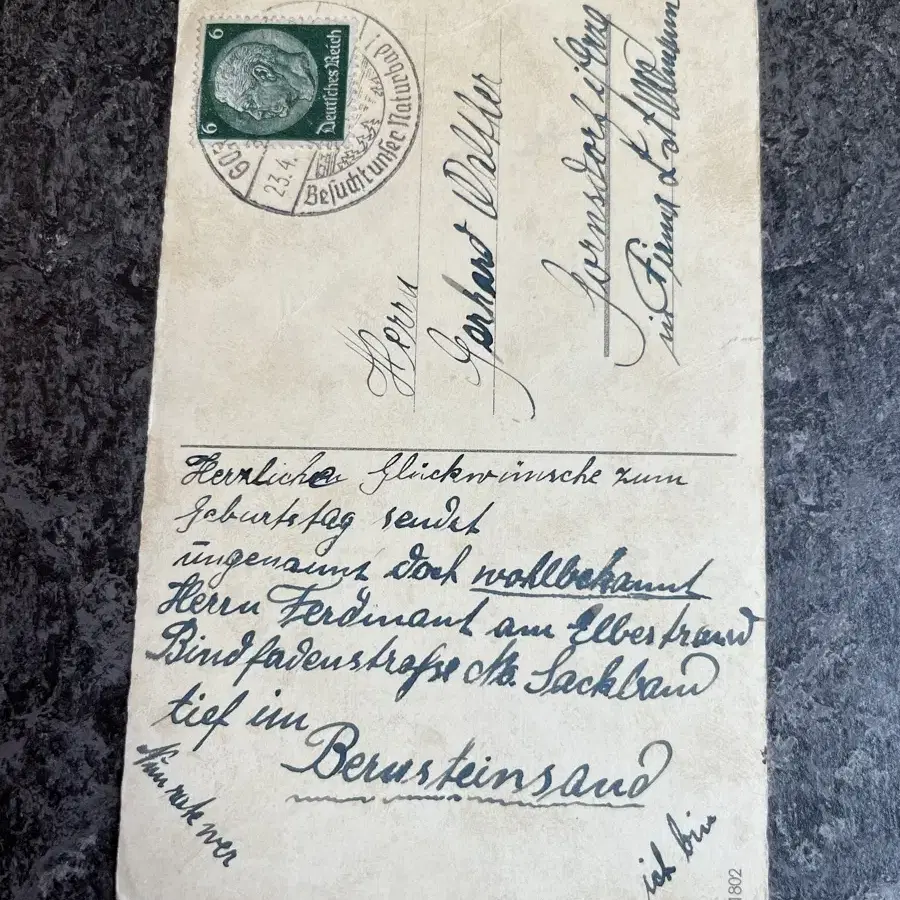 6
6
Deutsches Reich
23.4.
Besucht unser Naturbad!
Herrn
Gerhard
Gornsdorf i/Erzg
in Firma
Herzlichen Glückwünsche zum
Geburtstag sendet
ungenannt doch wohlbekannt
Herrn Ferdinant am Elbestrand
Bindfadenstraße No. Sackband
tief im
Bernsteinsand
Nun rate wer
ich bin
1802